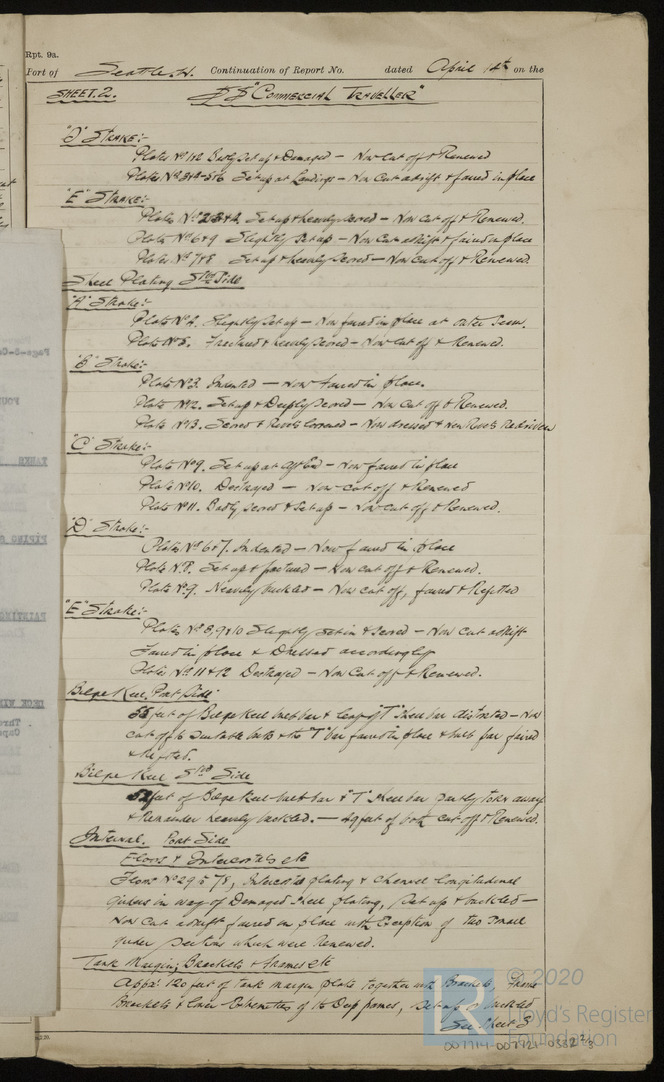 Rpt. 9a.
Port of Seattle, W. Continuation of Report No. dated April 14th on the
SHEET. 2. SS "COMMERCIAL TRAVELLER"
"D" STRAKE:-
Plates Nº 1+2 Badly Set up & Damaged — Now Cut off & Renewed
Plates Nº 3+4-5+6 Set up at Landings — Now Cut adrift & faired in place
"E" STRAKE:-
Plates Nº 2 3+4. Set up & heavily scored — Now Cut off & Renewed.
Plates Nº 6+9 Slightly Set up — Now Cut adrift & faired in place
Plates Nº 7+8 Set up & heavily Scored — Now Cut off & Renewed.
Shell Plating Stbd Side
"A" Strake:-
Plate Nº 4. Slightly set up — Now faired in place at outer Seam.
Plate Nº 5. Fractured & heavily Scored — Now Cut off & Renewed.
"B" Strake:-
Plate Nº 3. Indented — Now faired in place
Plate Nº 12. Set up & Deeply Scored — Now Cut off & Renewed.
Plate Nº 13. Scored & Rivets — Now dressed & New Rivets Redriven
"C" Strake:-
Plate Nº 9. Set up at aft End — Now faired in place
Plate Nº 10. Destroyed — Now Cut off & Renewed
Plate Nº 11. Badly scored & Set up — Now Cut off & Renewed.
"D" Strake:-
Plates Nº 6+7. Indented — Now faired in place
Plate Nº 8. Set up & fractured — Now Cut off & Renewed.
Plate Nº 9. Heavily buckled — Now Cut off, faired & Refitted
"E" Strake:-
Plates Nº 8, 9+10 Slightly set in & Scored — Now Cut adrift
Faired in place & Dressed accordingly
Plates Nº 11+12 Destroyed — Now Cut off & Renewed.
Bilge Keel, Port Side
55 feet of Bilge Keel bulb bar & leaf of "T" Shell bar distorted — Now
Cut off to Suitable butts & the "T" bar faired in place & bulb bar faired
& refitted.
Bilge Keel Stbd Side
52 feet of Bilge Keel bulb bar & "T" Shell bar partly torn away
& Remainder heavily buckled. — 49 feet of both Cut off & Renewed.
Internal. Port Side
Floors & Intercostals etc
Floors Nº 29 to 78, Intercostal plating & Channel longitudinal
Girders in way of Damaged Shell plating, Set up & buckled —
Now Cut adrift faired in place with Exception of two Small
girder Sections which were Renewed.
Tank Margin; Brackets & Frames etc
Appx. 120 feet of Tank Margin plate together with Brackets, Frame
Brackets & lower Extremities of 16 Deep frames, Set up & buckled
See Sheet 3
© 2020
Lloyd's Register
Foundation
007914-007921-0332 2/3